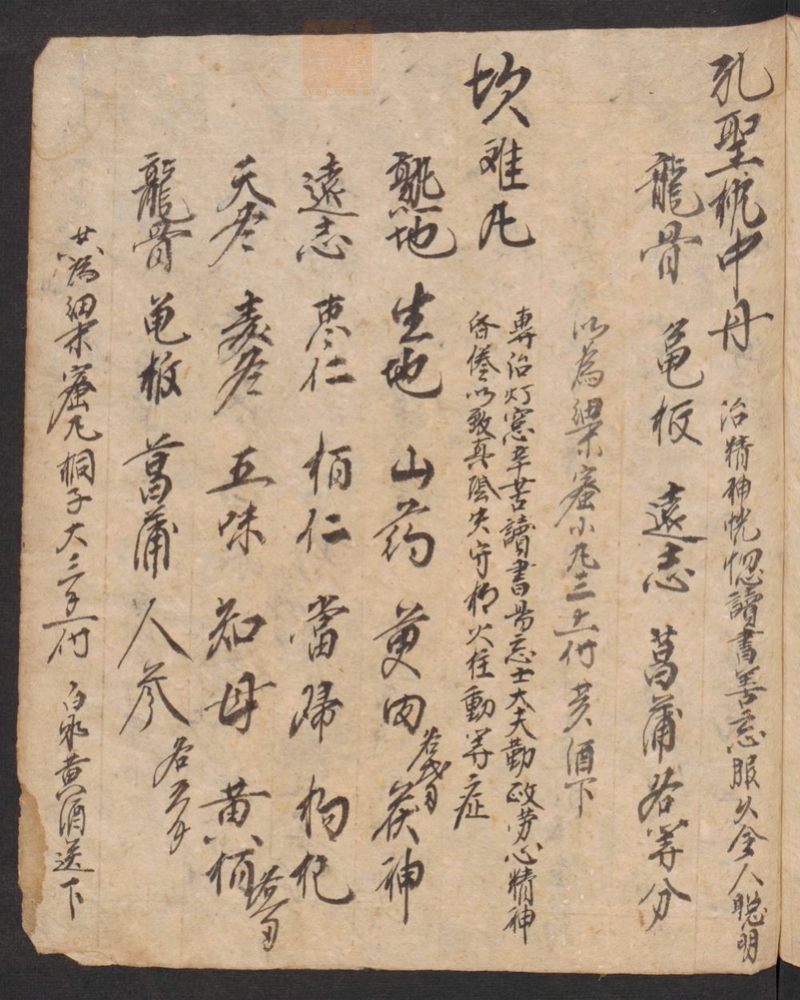 孔聖枕中丹 治精神恍惚讀書善忘服久令人聰明
龍骨 龜板 遠志 菖蒲各等分
以為細末蜜小丸三五付 黄酒下
坎难丸 專治灯窓辛苦讀書易忘士大夫勤政劳心精神
昏倦以致真陰失守相火柱動等症
熟地 生地 山药 萸肉 茯神
遠志 枣仁 栢仁 當歸 枸杞
天冬 麦冬 五味 知母 黄栢
龍骨 龟板 菖蒲 人參 各五分
共為細末蜜丸桐子大 付 白水黄酒送下